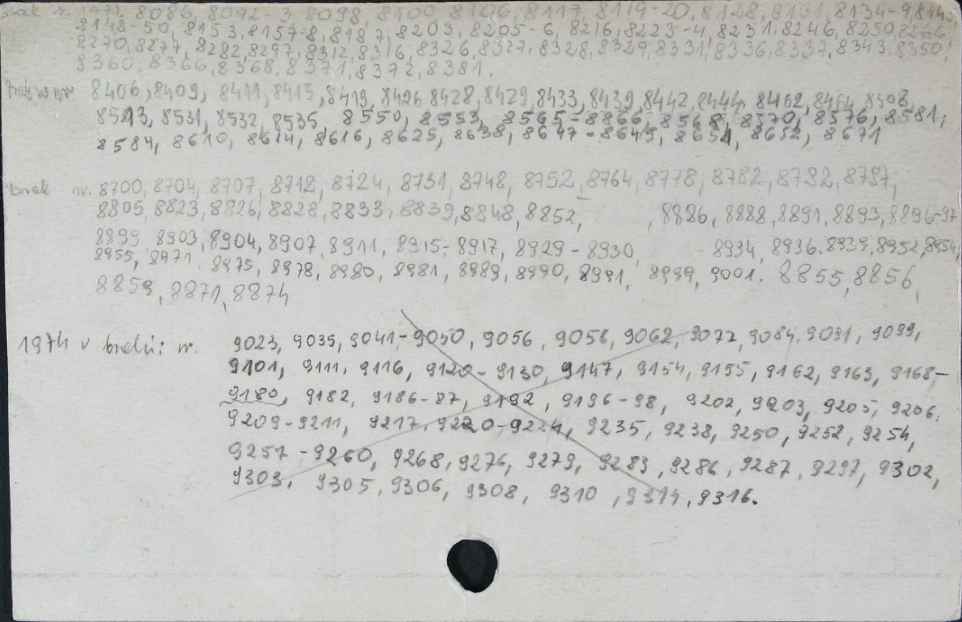 brak nr. 1973, 8086, 8092-3, 8098, 8100, 8106, 8117, 8119-20, 8128, 8131, 8134-9,
8148-50, 8153, 8157-8, 8187, 8203, 8205-6, 8216, 8223-4, 8231, 8246, 8250,
8270, 8277, 8282, 8297, 8312, 8316, 8326, 8327, 8328, 8329, 8331, 8336, 8337, 8343, 8350,
8360, 8366, 8368, 8371, 8372, 8381.
8406, 8409, 8411, 8415, 8419, 8426, 8428, 8429, 8433, 8439, 8442, 8444, 8462, 8464, 8508,
8513, 8531, 8532, 8535, 8550, 8553, 8565-8866, 8568, 8570, 8576, 8581,
8584, 8610, 8614, 8616, 8625, 8638, 8647-8649, 8651, 8652, 8671
brak nr. 8700, 8704, 8707, 8718, 8724, 8731, 8748, 8752, 8764, 8778, 8782, 8792, 8797,
8805, 8823, 8826, 8828, 8833, 8839, 8848, 8852, 8886, 8888, 8891, 8893, 8896-97
8899, 8903, 8904, 8907, 8911, 8915-8917, 8929-8930, -8934, 8936, 8939, 8952, 8954,
8955, 8971, 8975, 8978, 8980, 8981, 8989, 8990, 8991, 8999, 9001. 8855, 8856,
8859, 8871, 8874
1974 v nr. 9023, 9035, 9041-9050, 9056, 9058, 9062, 9072, 9084, 9091, 9099,
9101, 9111, 9116, 9120-9130, 9147, 9154, 9155, 9162, 9163, 9168-
9180, 9182, 9186-87, 9192, 9196-98, 9202, 9203, 9205, 9206,
9209-9211, 9217, 9220-9224, 9235, 9238, 9250, 9252, 9254,
9257-9260, 9268, 9276, 9279, 9283, 9286, 9287, 9297, 9302,
9303, 9305, 9306, 9308, 9310, 9314, 9316.